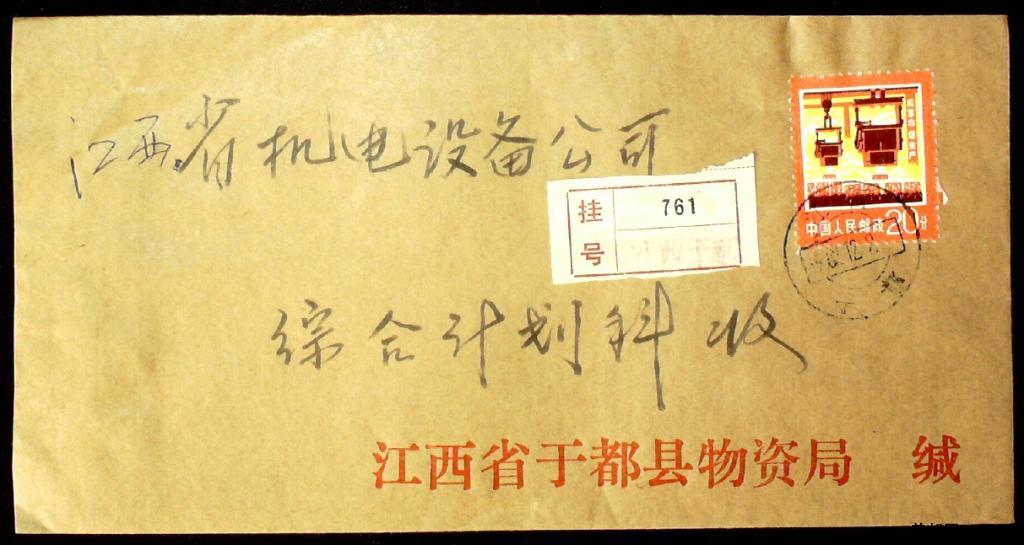 江西省机电设备公司
挂号 761
江西于都
中国人民邮政 20分
综合计划科 收
江西省于都县物资局 缄